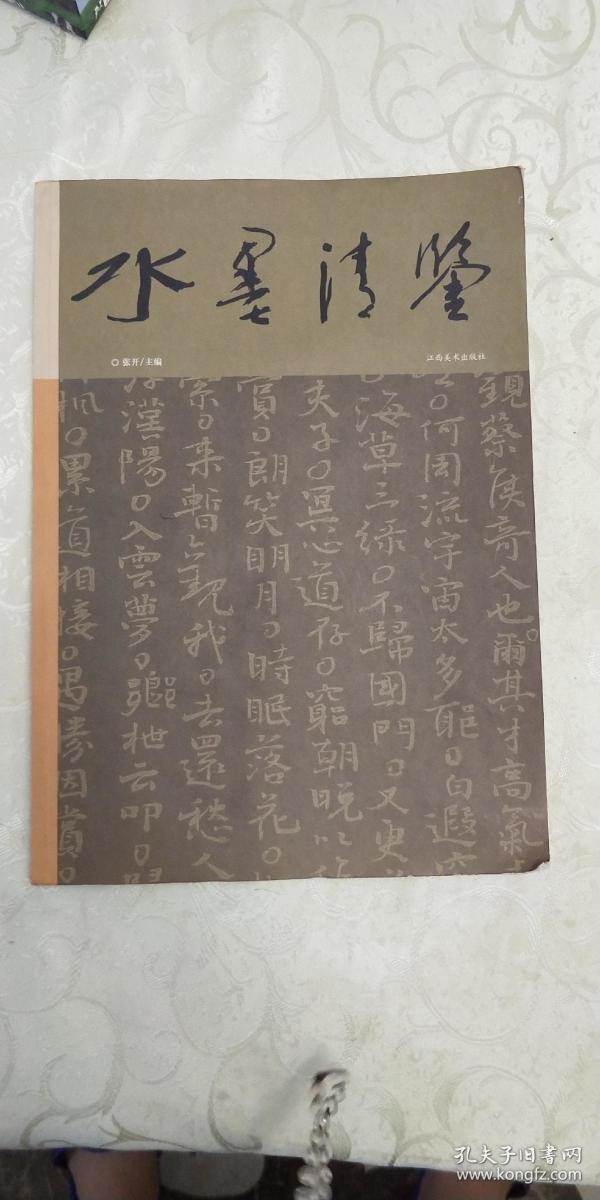 水墨清鉴
张开/主编
江西美术出版社
观蔡侯奇人也。爾其才高氣
何周流宇宙太多耶。白遐窮
海草三緑。不歸國門。又更
夫子。冥心道存。窮朝晚以
賓。朗笑明月。時眠落花。
來暫觀我。去還愁人
漢陽。入雲夢。枻云叩。歸
楓。累道相接。遇勝因賞。
孔夫子旧书网
www.kongfz.com